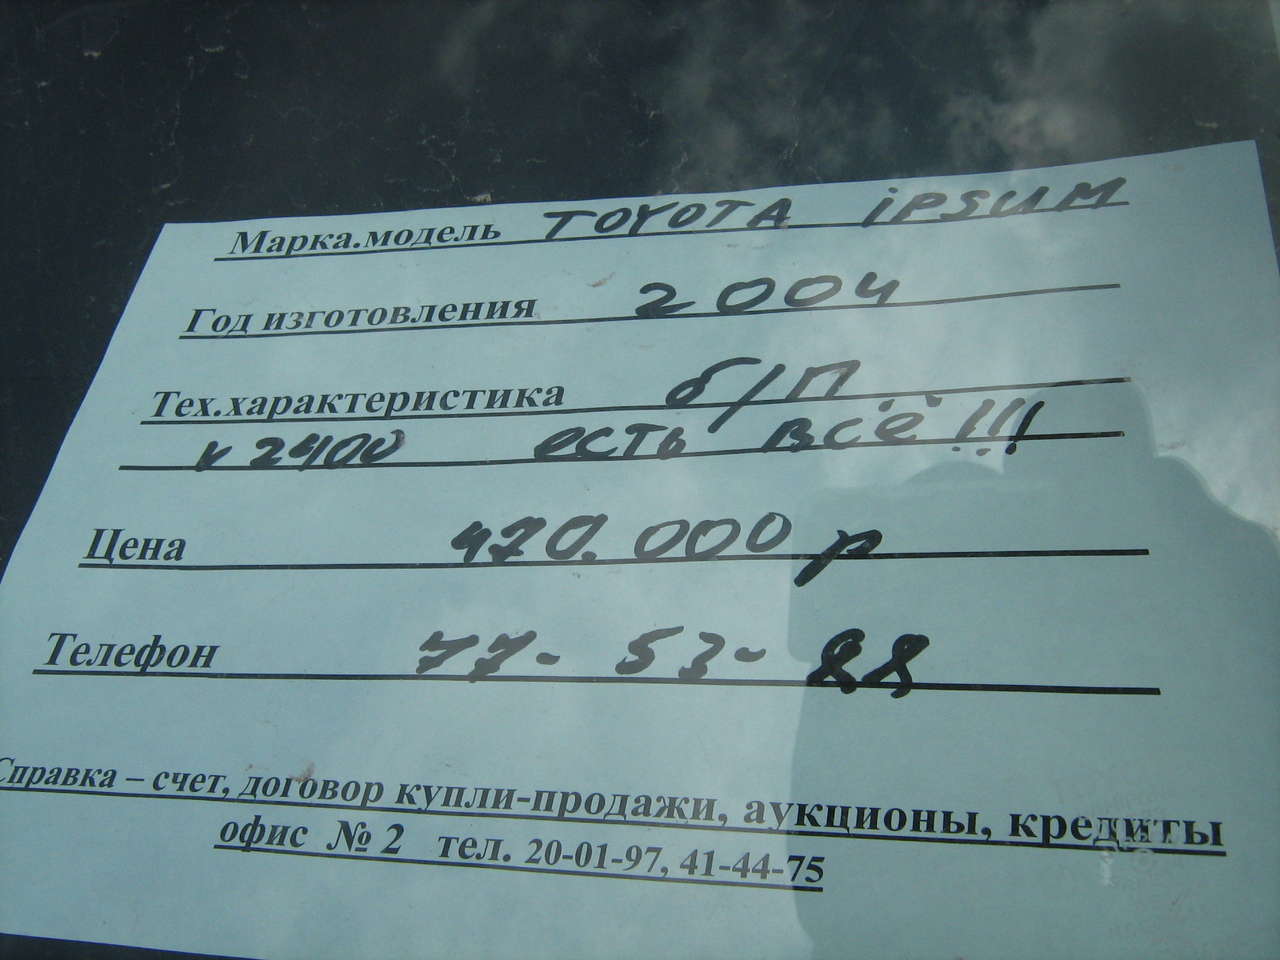 Марка.модель TOYOTA iPSUM
Год изготовления 2004
Тех.характеристика б/п,
v 2400 есть всё !!!
Цена 470.000 р
Телефон 77-53-88
Справка – счет, договор купли-продажи, аукционы, кредиты
офис № 2 тел. 20-01-97, 41-44-75